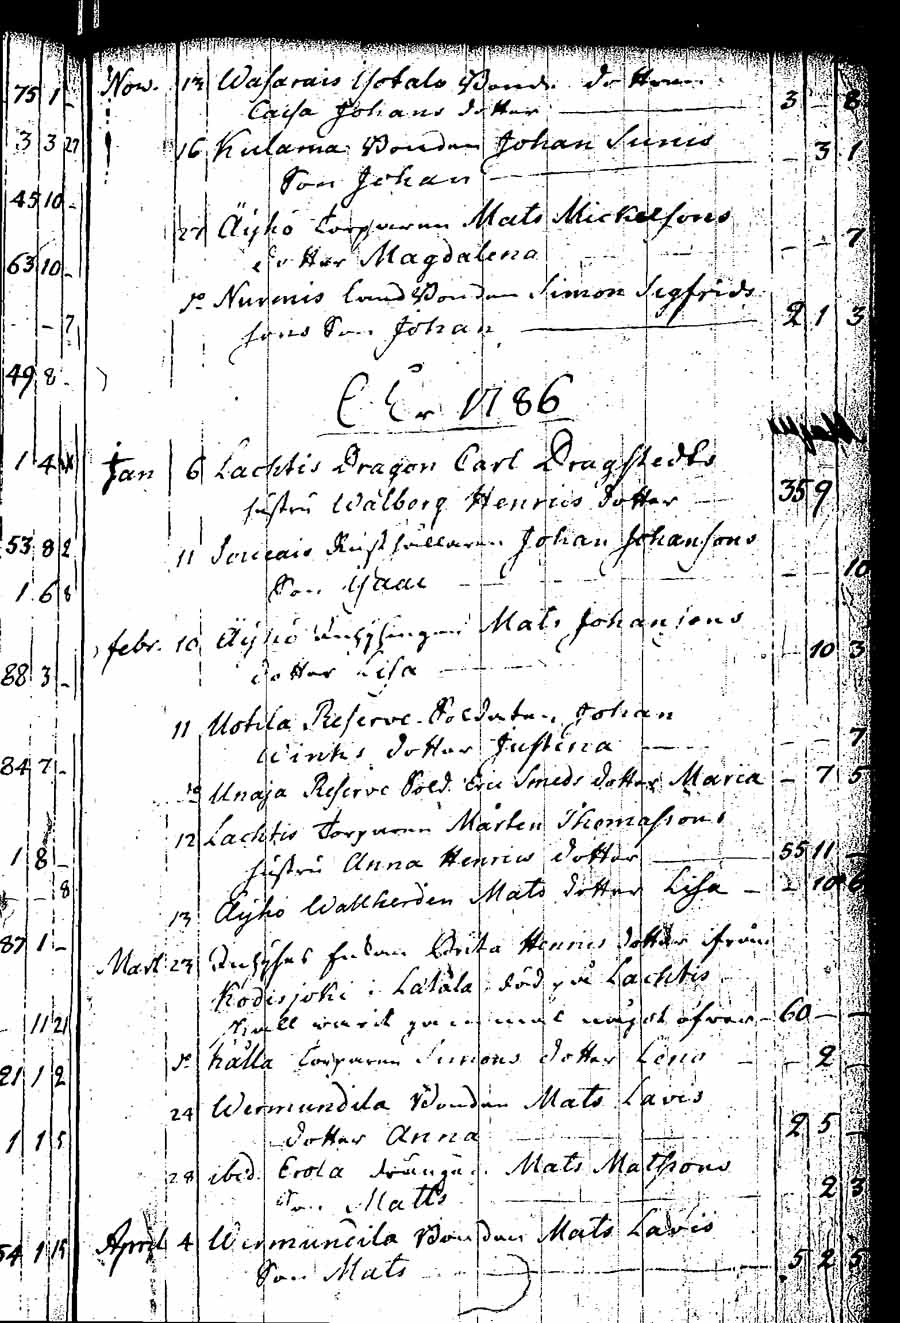 75 1 -
Nov. 13 Wasarais Yotalo Bond. dottren
Caisa Johans dotter 3 - 8
3 3 27
16 Kulama Bonden Johan Sunis
Son Johan - 3 1
45 10 -
27 Äyhö Torparen Mats Mickelsons
dotter Magdalena - - 7
63 10 -
Do Nurmis Land Bonden Simon Sigfrids
sons Son Johan 2 1 3
- 7
49 8 -
Åhr 1786
1 4
Jan 6 Lachtis Dragon Carl Dragstedts
hustru Walborg Henrics dotter 35 9
53 8 2
11 Rusthållaren Johan Johansons
Son Isaac - - 10
1 6 8
febr. 10 Äyhö Inhysingen Mats Johansons
dotter Lisa - 10 3
88 3 -
11 Uotila Reserve Soldaten Johan
dotter Justina - - 7
84 7 -
Do Unaja Reserve Sold. Eric Smeds dotter Maria - 7 5
12 Lachtis Torparen Mårten Thomassons
hustru Anna Henrics dotter 55 11 -
1 8 -
- - 8
13 Äyhö Wallherden Mats dotter Lisa - 10 6
87 1 -
Mart 23 Inhyses Enkan Brita Henrics dotter ifrån
Kodisjoki i Latala död på Lachtis
skall warit gammal något öfver 60 - -
- 11 21
Do Källa Torparen Simons dotter Lena - 2 -
21 1 2
24 Wermundila Bonden Mats Lavis
dotter Anna 2 5 -
1 1 5
28 ibid. Erola drängen Mats Matssons
Son Matts - 2 3
54 1 15
April 4 Wermundila Bonden Mats Lavis
Son Mats 5 2 5